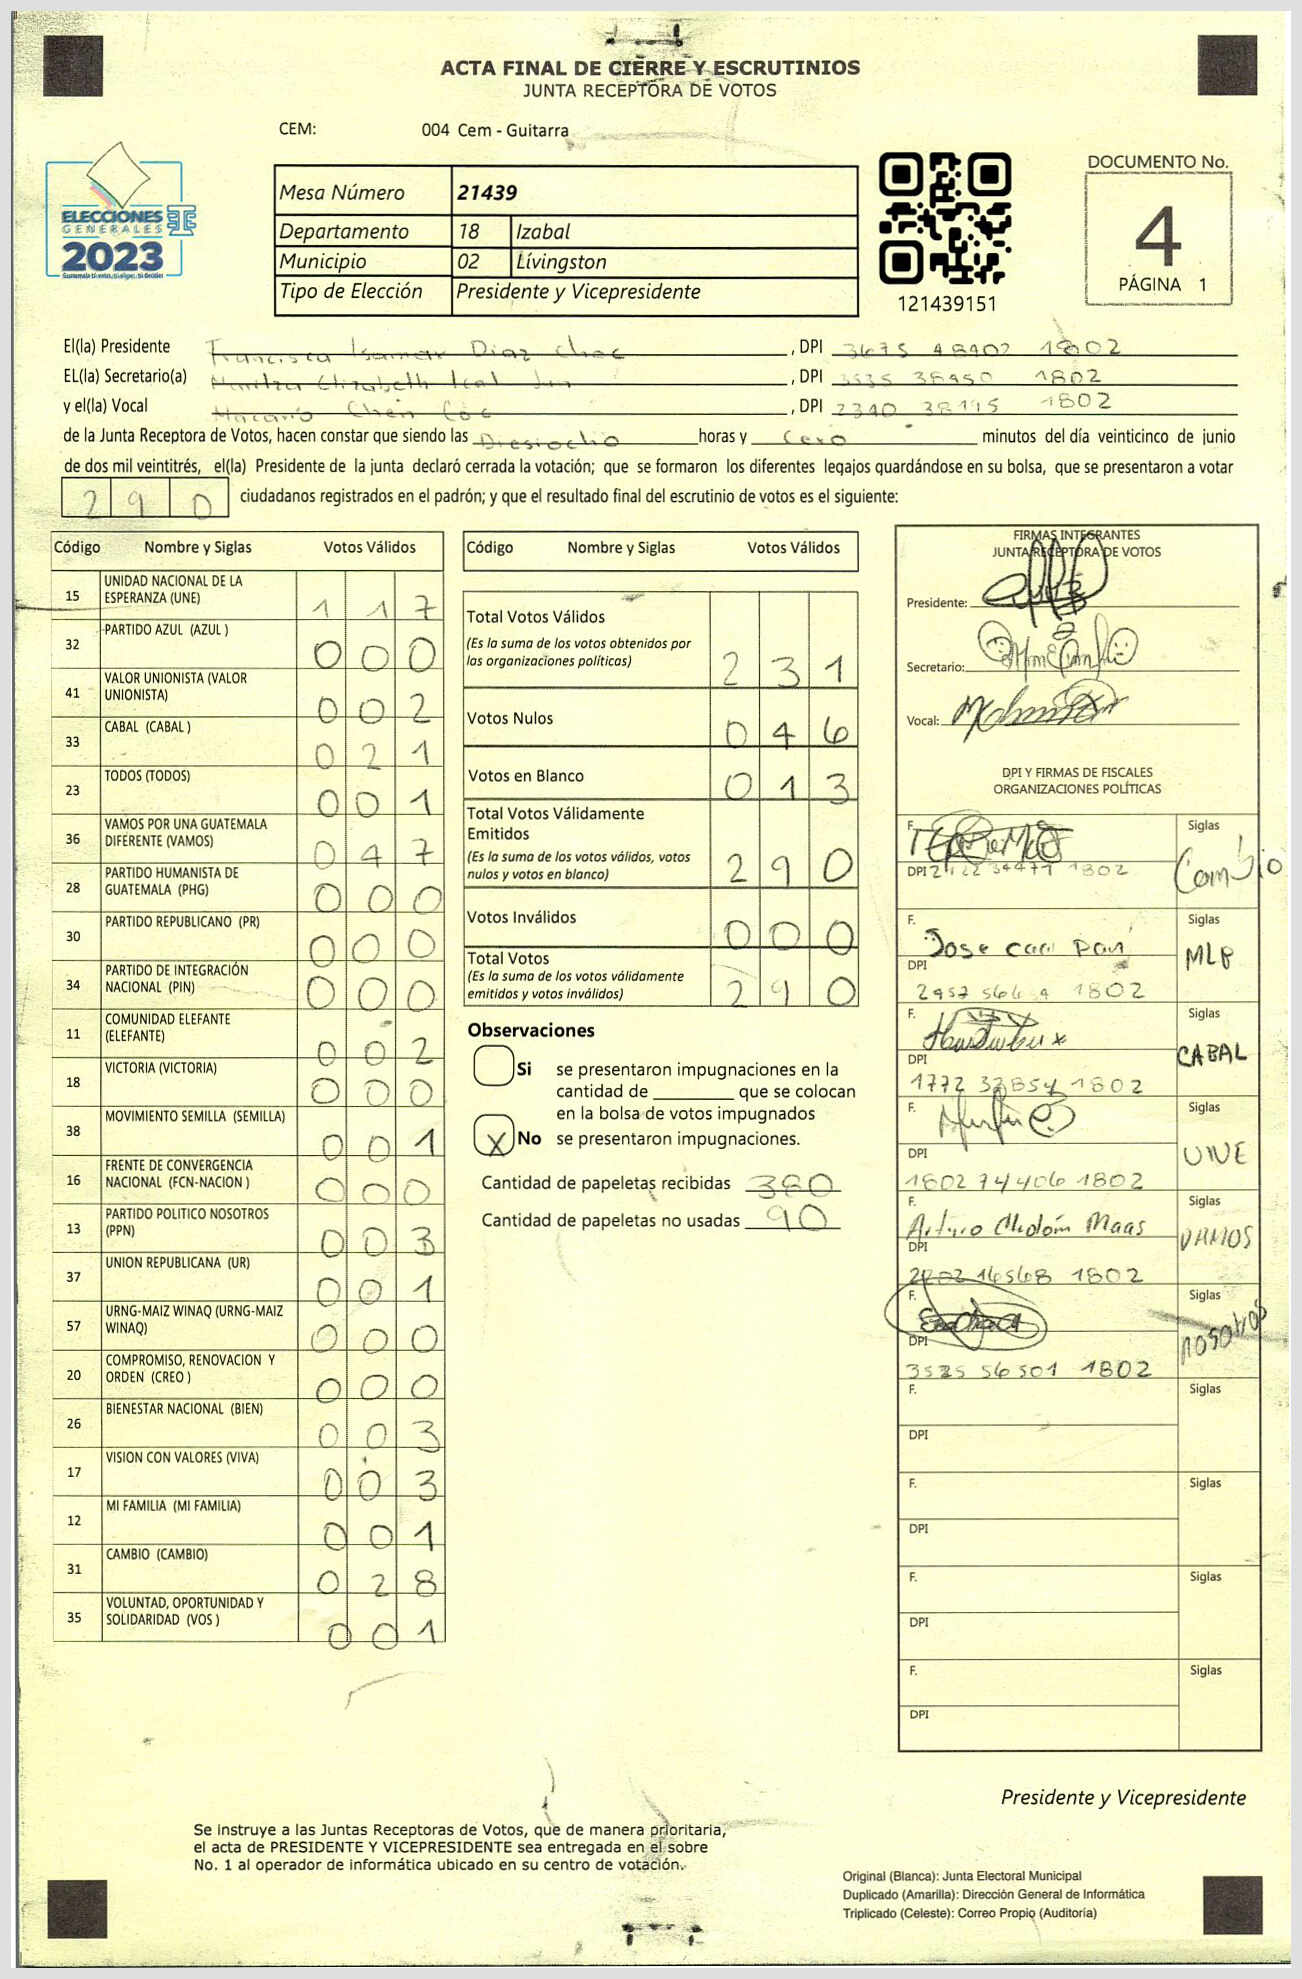 ACTA FINAL DE CIERRE Y ESCRUTINIOS
JUNTA RECEPTORA DE VOTOS
CEM: 004 Cem - Guitarra
ELECCIONES
GENERALES
2023
Mesa Número 21439
Departamento 18 Izabal
Municipio 02 Livingston
Tipo de Elección Presidente y Vicepresidente
121439151
DOCUMENTO No.
4
PÁGINA 1
El(la) Presidente Francisca Isamar Diaz Choc , DPI 3675 48402 1802
EL(la) Secretario(a) Maritza Elizabeth Ical , DPI 3535 38450 1802
y el(la) Vocal Macario Chen Coc , DPI 2340 38195 1802
de la Junta Receptora de Votos, hacen constar que siendo las Diesiocho horas y Cero minutos del día veinticinco de junio
de dos mil veintitrés, el(la) Presidente de la junta declaró cerrada la votación; que se formaron los diferentes legajos guardándose en su bolsa, que se presentaron a votar
290 ciudadanos registrados en el padrón; y que el resultado final del escrutinio de votos es el siguiente:
Código Nombre y Siglas Votos Válidos
15 UNIDAD NACIONAL DE LA ESPERANZA (UNE) 117
32 PARTIDO AZUL (AZUL ) 000
41 VALOR UNIONISTA (VALOR UNIONISTA) 002
33 CABAL (CABAL ) 021
23 TODOS (TODOS) 001
36 VAMOS POR UNA GUATEMALA DIFERENTE (VAMOS) 047
28 PARTIDO HUMANISTA DE GUATEMALA (PHG) 000
30 PARTIDO REPUBLICANO (PR) 000
34 PARTIDO DE INTEGRACIÓN NACIONAL (PIN) 000
11 COMUNIDAD ELEFANTE (ELEFANTE) 002
18 VICTORIA (VICTORIA) 000
38 MOVIMIENTO SEMILLA (SEMILLA) 001
16 FRENTE DE CONVERGENCIA NACIONAL (FCN-NACION ) 000
13 PARTIDO POLITICO NOSOTROS (PPN) 003
37 UNION REPUBLICANA (UR) 001
57 URNG-MAIZ WINAQ (URNG-MAIZ WINAQ) 000
20 COMPROMISO, RENOVACION Y ORDEN (CREO ) 000
26 BIENESTAR NACIONAL (BIEN) 003
17 VISION CON VALORES (VIVA) 003
12 MI FAMILIA (MI FAMILIA) 001
31 CAMBIO (CAMBIO) 028
35 VOLUNTAD, OPORTUNIDAD Y SOLIDARIDAD (VOS ) 001
Código Nombre y Siglas Votos Válidos
Total Votos Válidos 231
(Es la suma de los votos obtenidos por
las organizaciones políticas)
Votos Nulos 046
Votos en Blanco 013
Total Votos Válidamente
Emitidos 290
(Es la suma de los votos válidos, votos
nulos y votos en blanco)
Votos Inválidos 000
Total Votos 290
(Es la suma de los votos válidamente
emitidos y votos inválidos)
Observaciones
Si se presentaron impugnaciones en la
cantidad de ________ que se colocan
en la bolsa de votos impugnados
X No se presentaron impugnaciones.
Cantidad de papeletas recibidas 380
Cantidad de papeletas no usadas 90
FIRMAS INTEGRANTES
JUNTA RECEPTORA DE VOTOS
Presidente:
Secretario:
Vocal:
DPI Y FIRMAS DE FISCALES
ORGANIZACIONES POLÍTICAS
F. Siglas Cambio
DPI 1802
F. Jose Siglas MLP
DPI 1802
F. Siglas CABAL
DPI 1772 1802
F. Siglas UNE
DPI 1802 74406 1802
F. Arturo Maas Siglas VAMOS
DPI 16568 1802
F. Siglas nosotros
DPI 3525 56501 1802
F. Siglas
DPI
F. Siglas
DPI
F. Siglas
DPI
F. Siglas
DPI
Presidente y Vicepresidente
Se instruye a las Juntas Receptoras de Votos, que de manera prioritaria,
el acta de PRESIDENTE Y VICEPRESIDENTE sea entregada en el sobre
No. 1 al operador de informática ubicado en su centro de votación.
Original (Blanca): Junta Electoral Municipal
Duplicado (Amarilla): Dirección General de Informática
Triplicado (Celeste): Correo Propio (Auditoría)